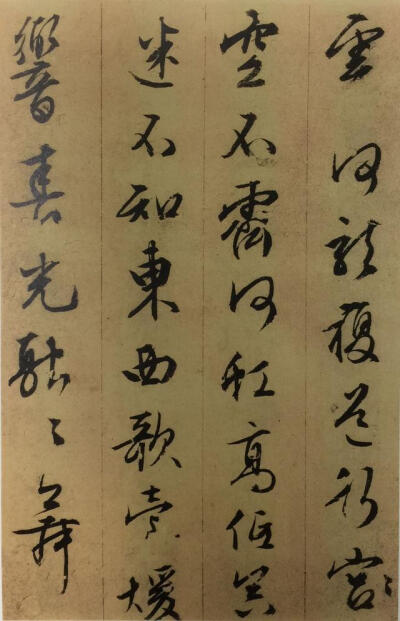 雲何龍複道行宮
空不霽何虹高低冥
迷不知東西歌臺暖
響春光融々舞